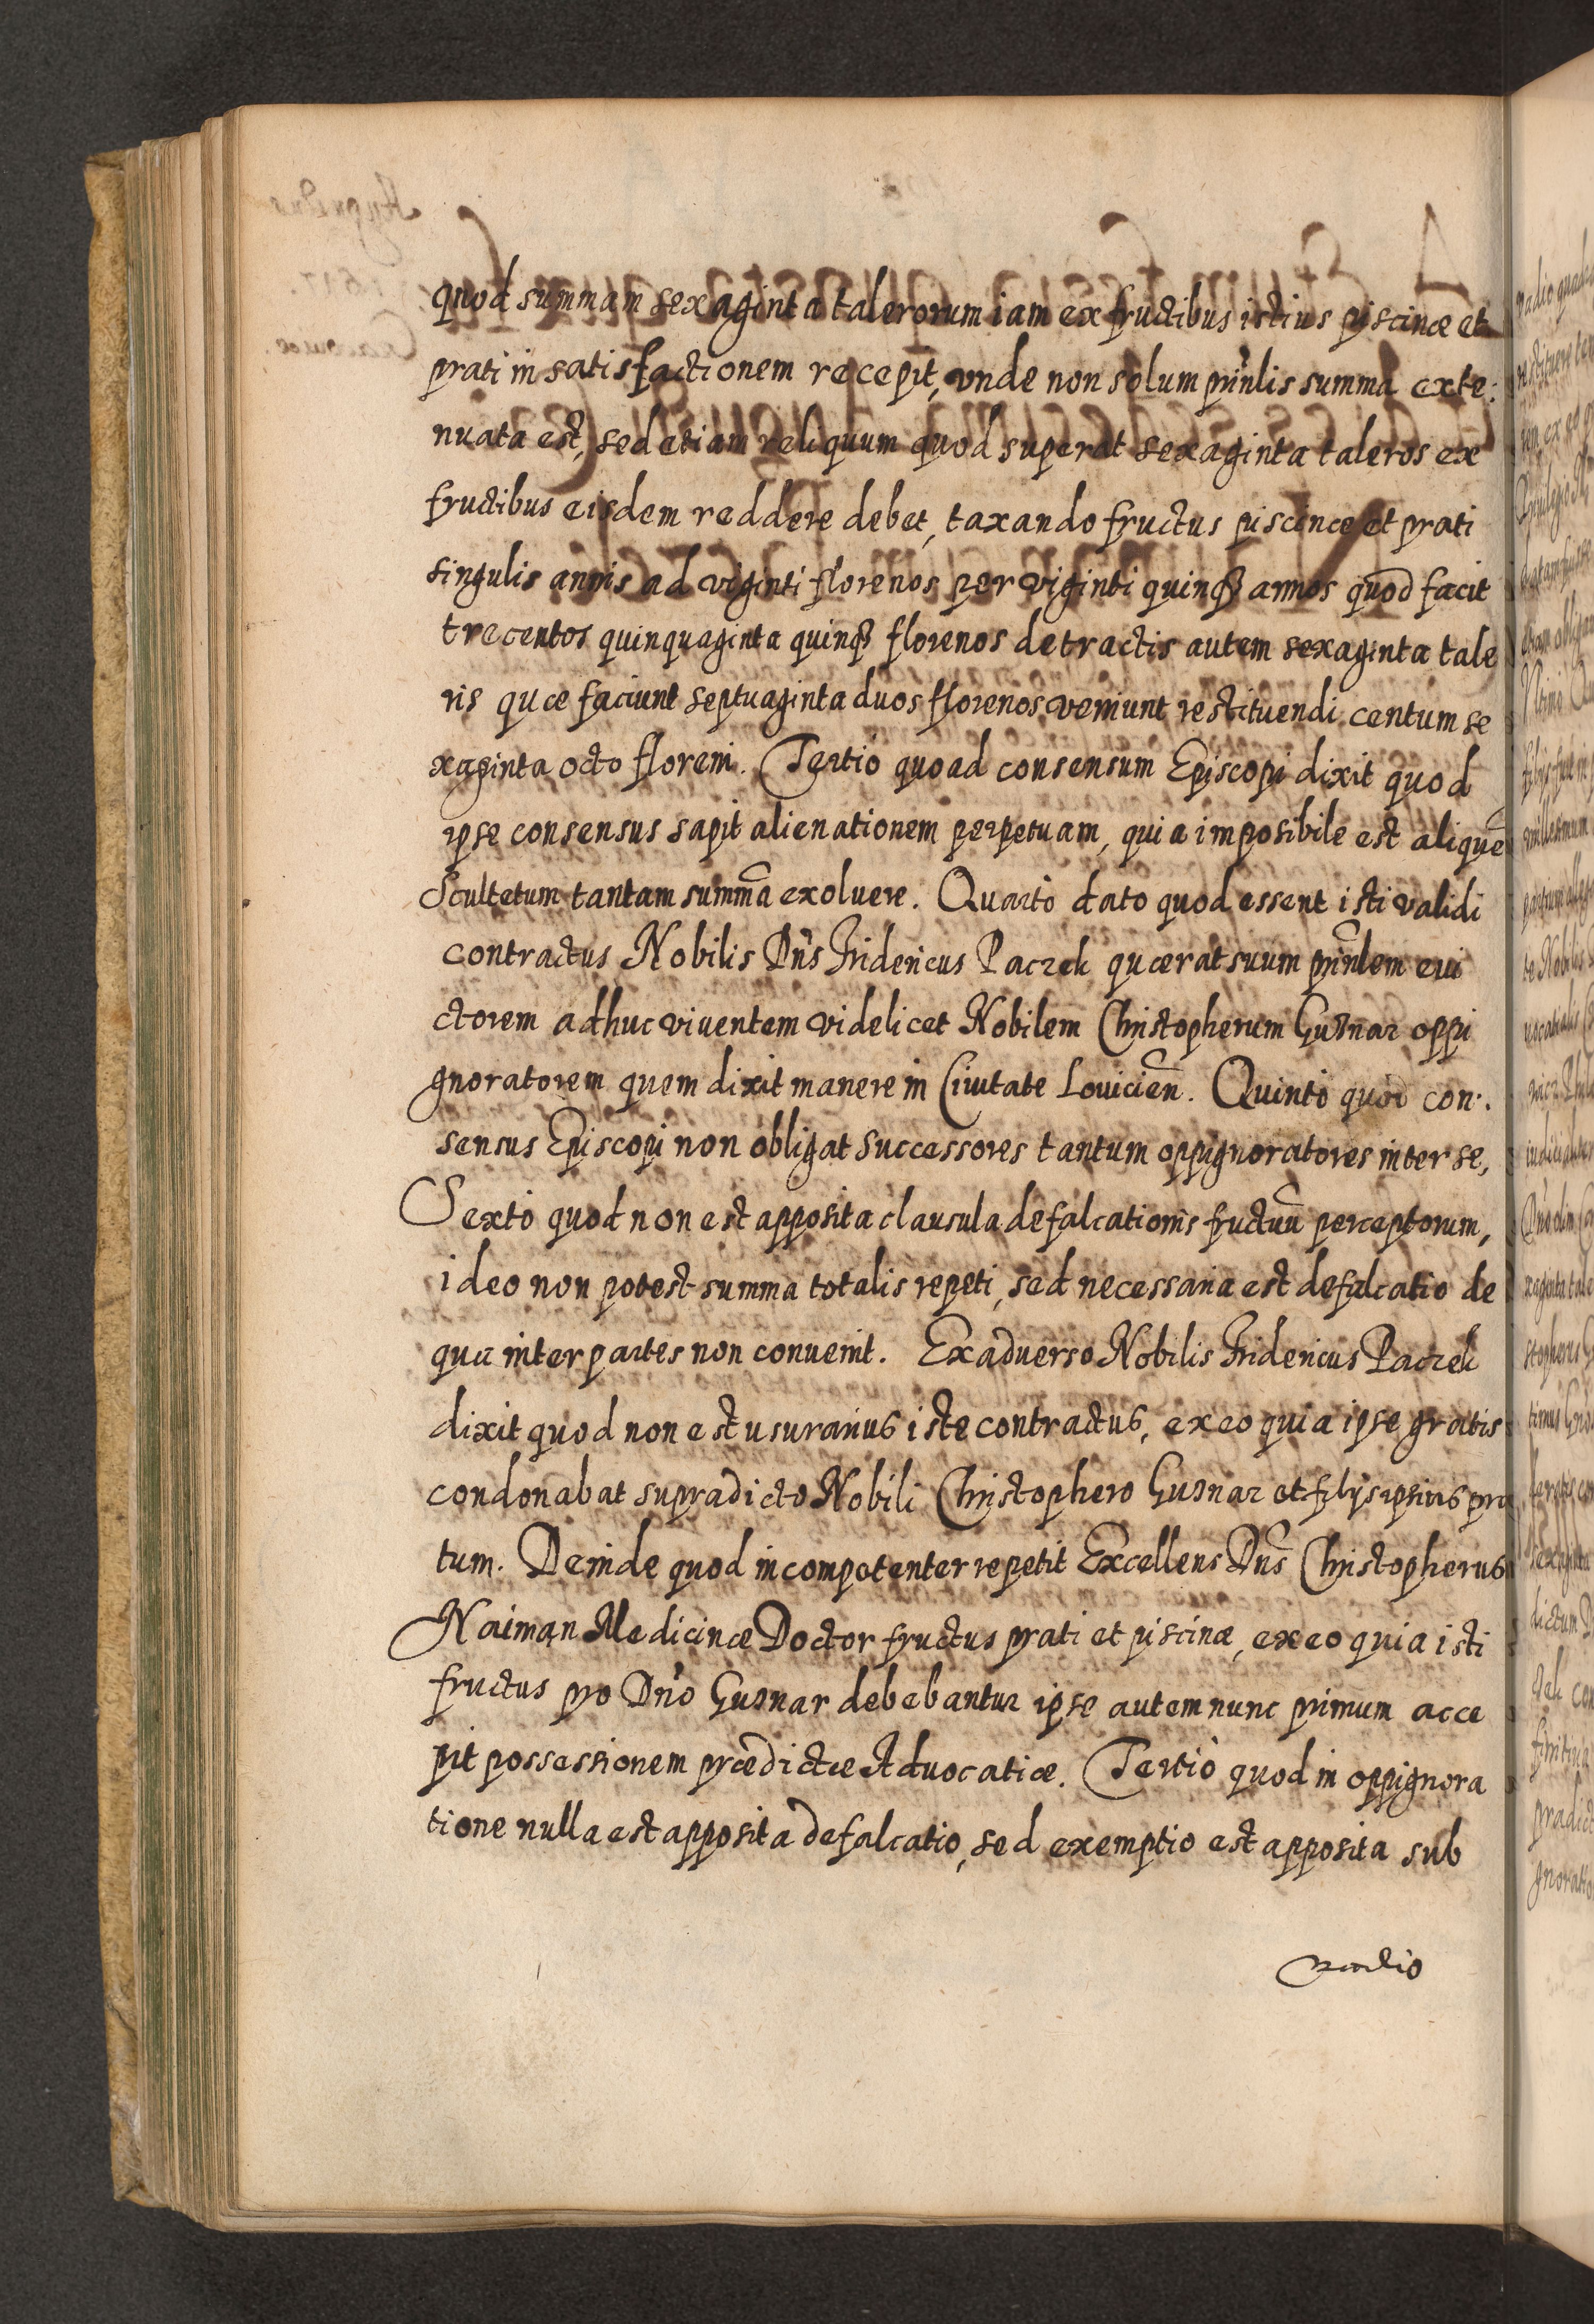 quod summam sexaginta talerorum iam ex fructibus istius piscinæ et
prati in satisfactionem recepit, vnde non solum prin̄lis summa exte:
nuata est, sed etiam reliquum quod superat sexaginta taleros ex
fructibus eisdem reddere debet, taxando fructus piscinæ et prati
singulis annis ad viginti florenos per viginti quinqȝ annos quod facit
trecentos quinquaginta quinqȝ florenos detractis autem sexaginta tale
ris quæ faciunt septuaginta duos florenos veniunt restituendi centum se
xaginta octo floreni. Tertio quoad consensum Episcopi dixit quod
ipse consensus sapit alienationem perpetuam, quia imposibile est aliquē
Scultetum tantam summā exoluere. Quarto dato quod essent isti validi
contractus Nobilis Dn̄s Fridericus Paczek quærat suum prin̄lem eui
ctorem adhuc viuentem videlicet Nobilem Christopherum Gusnar oppi
gnoratorem quem dixit manere in Ciuitate Louicien̄. Quintò quod con:
sensus Episcopi non obligat successores tantum oppignoratores inter se,
Sextò quod non est apposita clausula defalcationis fructuū perceptorum,
ideo non potest summa totalis repeti, sed necessaria est defalcatio de
qua inter partes non conuenit. Exaduerso Nobilis Fridericus Paczek
dixit quod non est usurarius iste contractus, ex eo quia ipse gratis
condonabat supradicto Nobili Christophero Gusnar et filijs ipsius pra
tum. Deinde quod incompotenter repetit Excellens Dn̄s Christopherus
Naiman Medicinæ Doctor fructus prati et piscinæ, ex eo quia isti
fructus pro Dn̄o Gusnar debebantur ipse autem nunc primum acce
pit possessionem prædictæ Aduocatiæ. Tertiò quod in oppignora
tione nulla est apposita defalcatio, sed exemptio est apposita sub
vadio